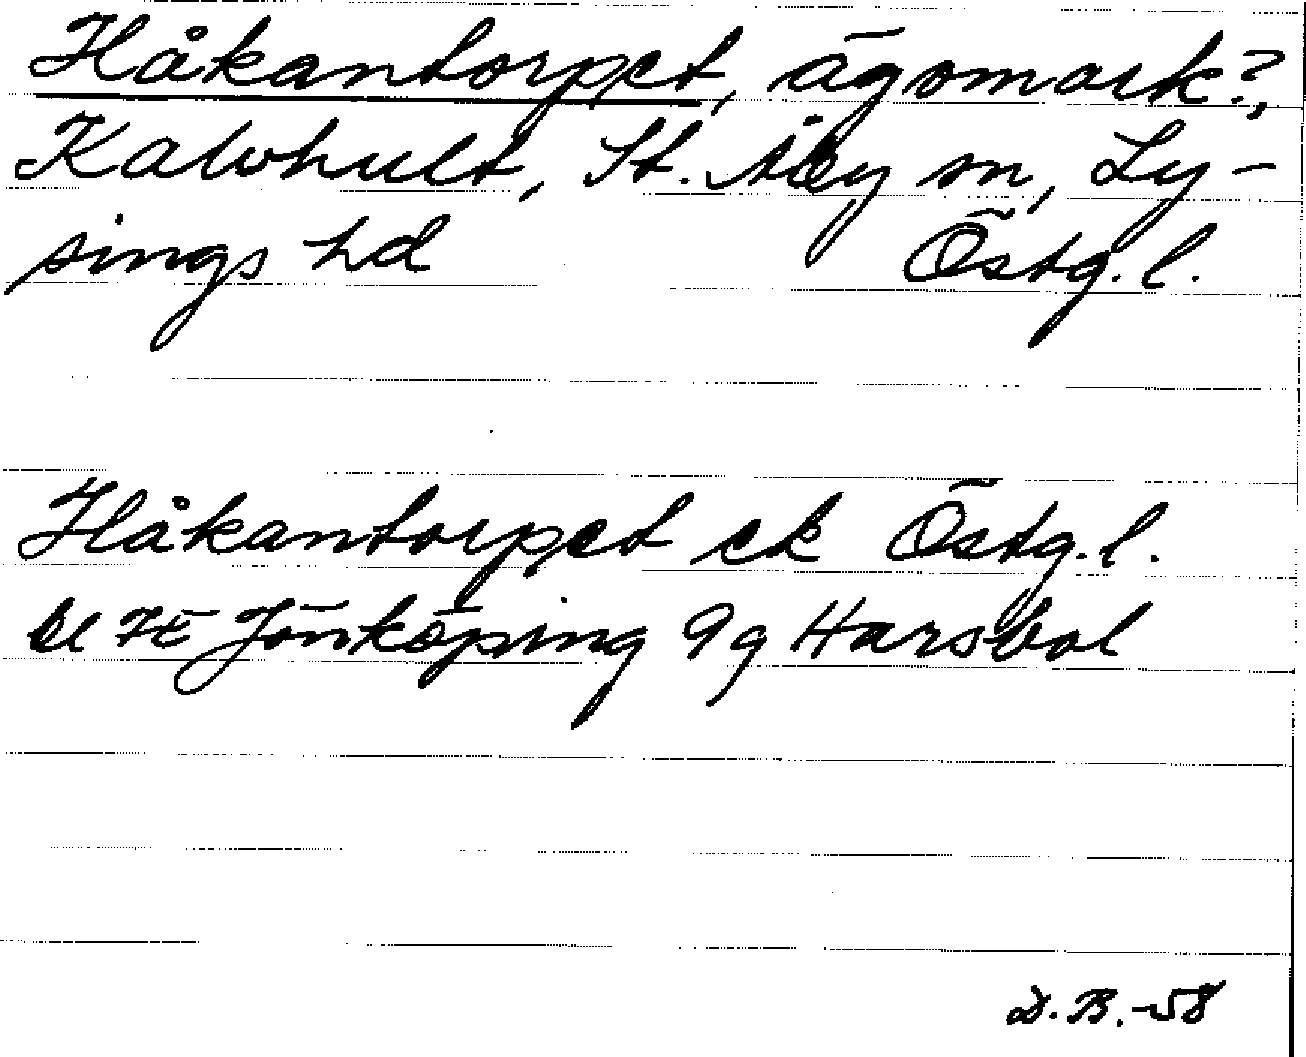 Håkantorpet, ägomark?,
Kalvhult, St. Åby sn, Ly-
sings hd Östg. l.
Håkantorpet ek Östg. l.
bl 7E Jönköping 9g Harsbol
D. B. -58